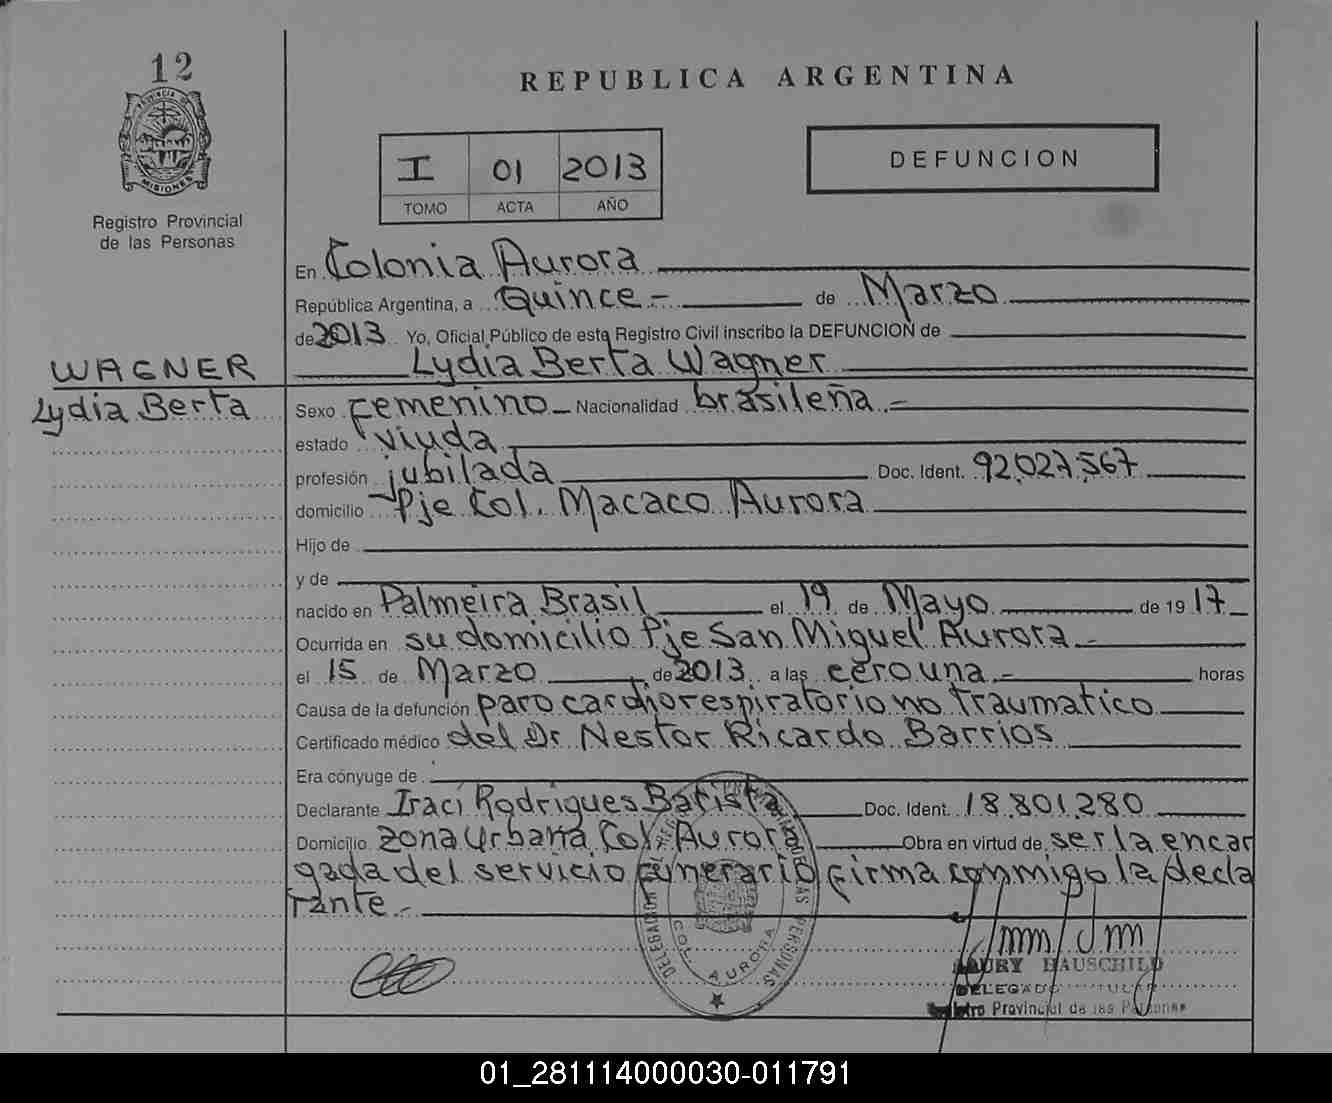 12
PROVINCIA DE
MISIONES
Registro Provincial
de las Personas
REPUBLICA ARGENTINA
I 01 2013
TOMO ACTA AÑO
DEFUNCION
En Colonia Aurora
República Argentina, a Quince - de Marzo
de 2013 Yo, Oficial Público de este Registro Civil inscribo la DEFUNCION de
WAGNER
Lydia Berta
Lydia Berta Wagner
Sexo femenino - Nacionalidad brasileña -
estado viuda
profesión jubilada Doc. Ident. 92.027.567
domicilio Pje Col. Macaco Aurora
Hijo de
y de
nacido en Palmeira Brasil el 19 de Mayo de 1917
Ocurrida en su domicilio Pje San Miguel Aurora -
el 15 de Marzo de 2013 a las cero una - horas
Causa de la defunción paro cardiorespiratorio no traumatico
Certificado médico del Dr Nestor Ricardo Barrios
Era cónyuge de
Declarante Iraci Rodrigues Batista Doc. Ident. 18.801.280
Domicilio zona Urbana Col. Aurora Obra en virtud de ser la encar
gada del servicio funerario firma conmigo la decla
rante -
DELEGACION DEL REGISTRO PROVINCIAL DE LAS PERSONAS
COL. AURORA
HAUSCHILD
DELEGADO TITULAR
Registro Provincial de las Personas
01_281114000030-011791